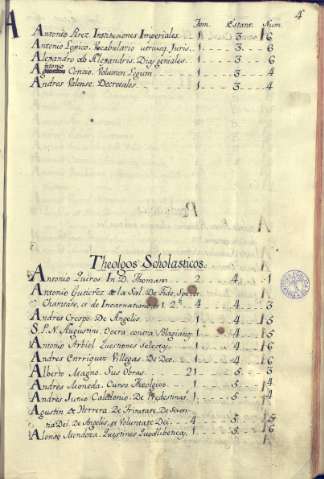 A
4
Tom. Estant. Num.
Antonio Perez Instituciones Imperiales. 1 3 6
Antonio Vocabulario utriusq. Juris. 1 3 6
Alexandro ab Alexandro. Dias geniales. 1 3 6
Antonio Concio. Volumen Legum 1 3 4
Andres Valense. Decretales. 1 3 4
Theologos Scholasticos.
Antonio Quiros In D. Thomam 2 4 1
Antonio Gutierez de la Sal. De Fide, Spe et
Charitate, et de Incarnatione 1. 2. 4 4 3
Andres Crespo. De Angelis. 1 4 15
S. P. N. Augustini. Opera contra Pelagianos 1 4 15
Antonio Arbiol Questiones selectas 1 4 16
Andres Enrriquez Villegas. De Deo. 1 4 16
Alberto Magno. Sus Obras. 21 5 3
Andres Moneda. Curso Theologico 1 5 4
Andres Junio De Predestinat. 1 5 4
Agustin de Herrera. De Trinitate. De Scien
tia Dei. De Angelis, et Voluntate Dei. 4 5 15
Alonso Mendoza. Questines Quodlibeticas. 1 5 16